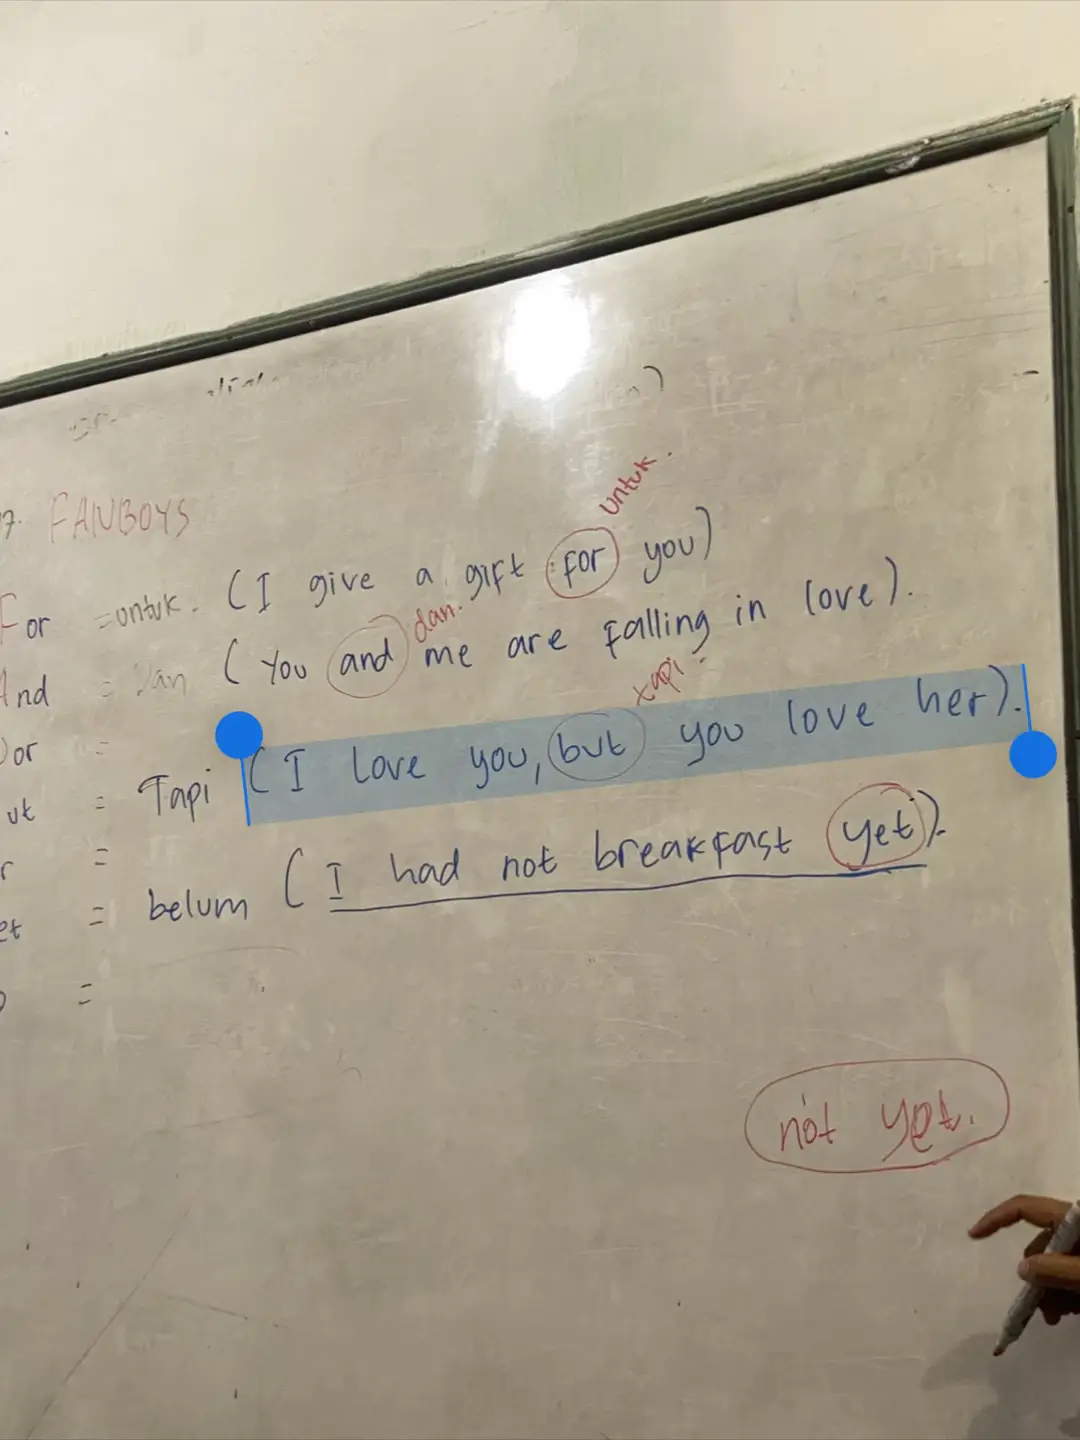 7. FANBOYS
untuk.
For = untuk. (I give a gift for you)
dan.
And = Dan (You and me are falling in love).
tapi
or =
ut = Tapi (I Love you, but you love her).
r =
et = belum (I had not breakfast yet).
=
not yet.